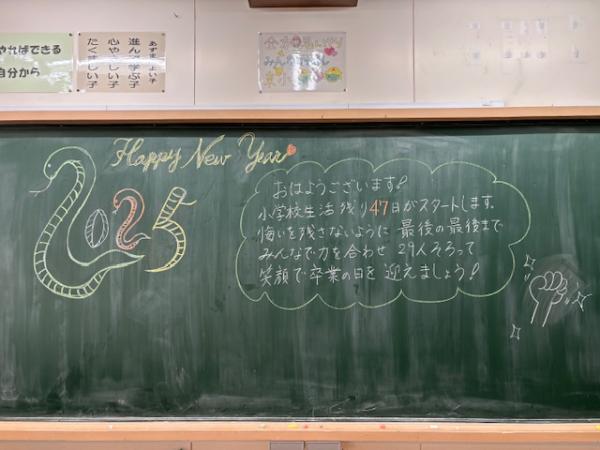 やればできる
自分から
あずま よい子
進んで学ぶ子
心やさしい子
たくましい子
Happy New Year
2025
おはようございます!
小学校生活 残り47日がスタートします。
悔いを残さないように 最後の最後まで
みんなで力を合わせ 29人そろって
笑顔で卒業の日を 迎えましょう!